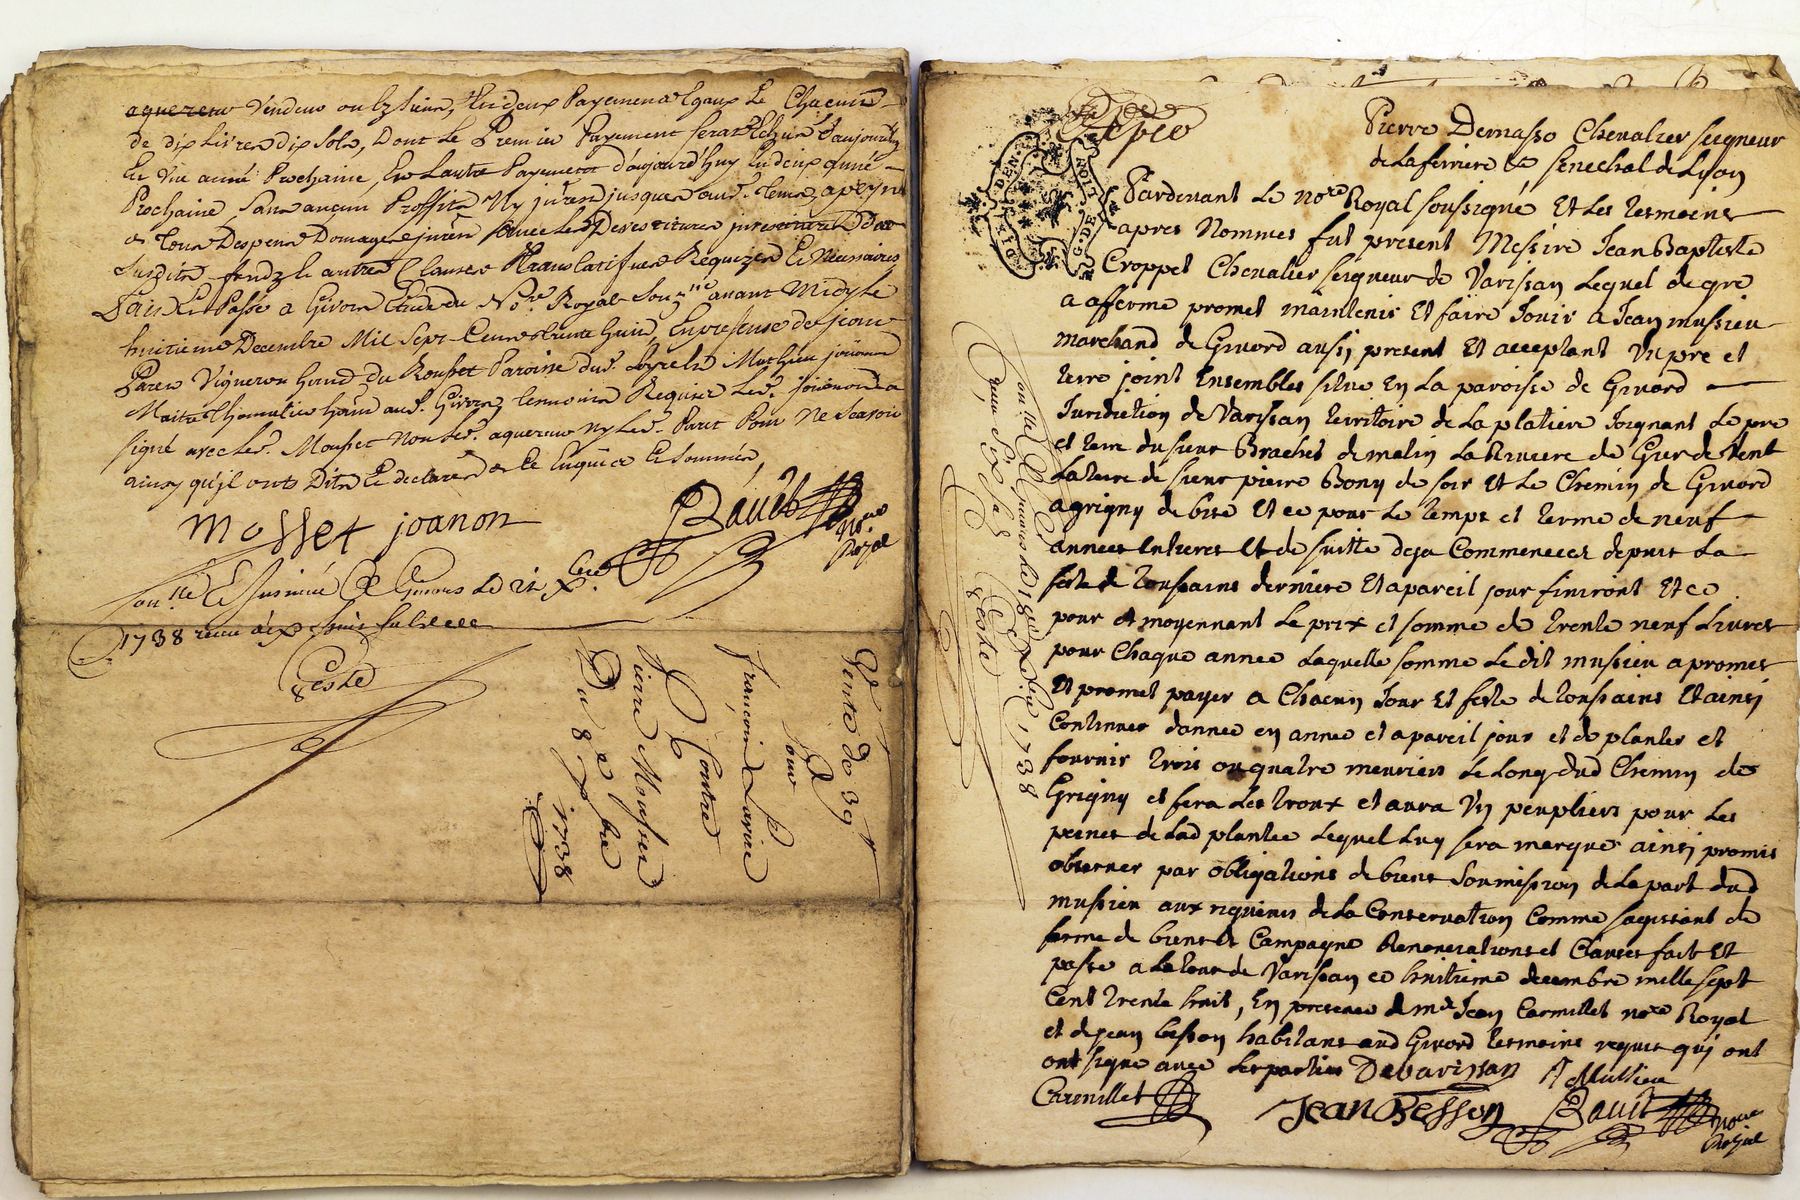 aquereur vendeur ou les siens, En deux Payements Egaux De Chacun
de dix Livres dix sols, Dont Le Premier Payement sera Echu d'aujourd'huy
En une année Prochaine, Et Lautre Payement d'aujourd'huy En deux année
Prochaine, sans aucun Proffits Ny jusques aud. temps, a peyne
de tous Despens Domages
autres Clauses Translatifves Requizes Et Necessaires
Fait Et Passé a Givors Etude du No.re Royal Sous.né avant Midy Le
huitieme Decembre Mil Sept Cent trente huit, En presense de jean
Paret Vigneron Grand du Rousset Paroisse du Mathieu joüanon
Maitre aud. Givors temoins Requis Led. joüanon a
signé avec Led. Mousset Non Led. aquereur ny Led. Paret Pour Ne Scavoir
ainsy qu'jl onts Dits Et declarés de Ce Enquis Et Sommés,
mosset joanon
Bauit
No.re
Royal
Con.lle Et Insinué a Givors Le 21 X.bre
1738 receu dix
Coste
Vente de 39
Pour
françois
Contre
Pierre Mousset
Du 8e Xbre
1738
G. DE
Pierre Dernasso Chevalier seigneur
de Laferriere &c senechal de Lyon
Pardevant Le No.re Royal soussigné Et Les tesmoins
apres Nommes fut present Messire Jean Baptiste
Croppet Chevalier seigneur de Varissan Lequel de gre
a afferme promet maintenir Et faire Jouir a Jean mussieu
marchand de Givord aussi present Et acceptant Un pre et
terre joint Ensembles situe En La paroisse de Givord
Juridiction de Varissan territoire de La platiere Joignant Le pre
et terre du sieur Braches de matin La Riviere de Gier de Vent
La terre de sieur pierre Bony de soir Et Le Chemin de Givord
a grigny de bise Et ce pour Le temps et terme de neuf
annees Entieres Et de suitte deja Commencees depuis La
feste de toussains derniere Et a pareil jour finiront Et ce
pour et moyennant Le prix et somme de trente neuf Livres
pour Chaque annee Laquelle somme Le dit mussieu a promes
Et promet payer a Chacun Jour Et feste de toussains Et ainsi
Continuer dannee en annee et a pareil jour et de planter et
fournir trois ou quatre meuriers Le Long dud Chemin de
Grigny et fera Les troux et aura Un peupliers pour Les
peines de Lad plantee Lequel Luy sera marque ainsi promis
observer par obligations de biens Soumission de La part dud
mussieu aux rigueurs de La Conservation Comme sagissant de
ferme de biens de Campagne Renonciations et Clauses fait Et
passe a La tour de Varissan ce huitieme decembre mille sept
Cent trente huit, En presence de m.e Jean Carmillet no.re Royal
et de jean besson habitans aud Givord tesmoins requis qui ont
ont signe avec Les parties Devarissan J Mussieu
Carmillet Jean Besson Bauit
No.re
Royal
Con.lle a Givors Le 18e X.bre 1738
receu
Coste